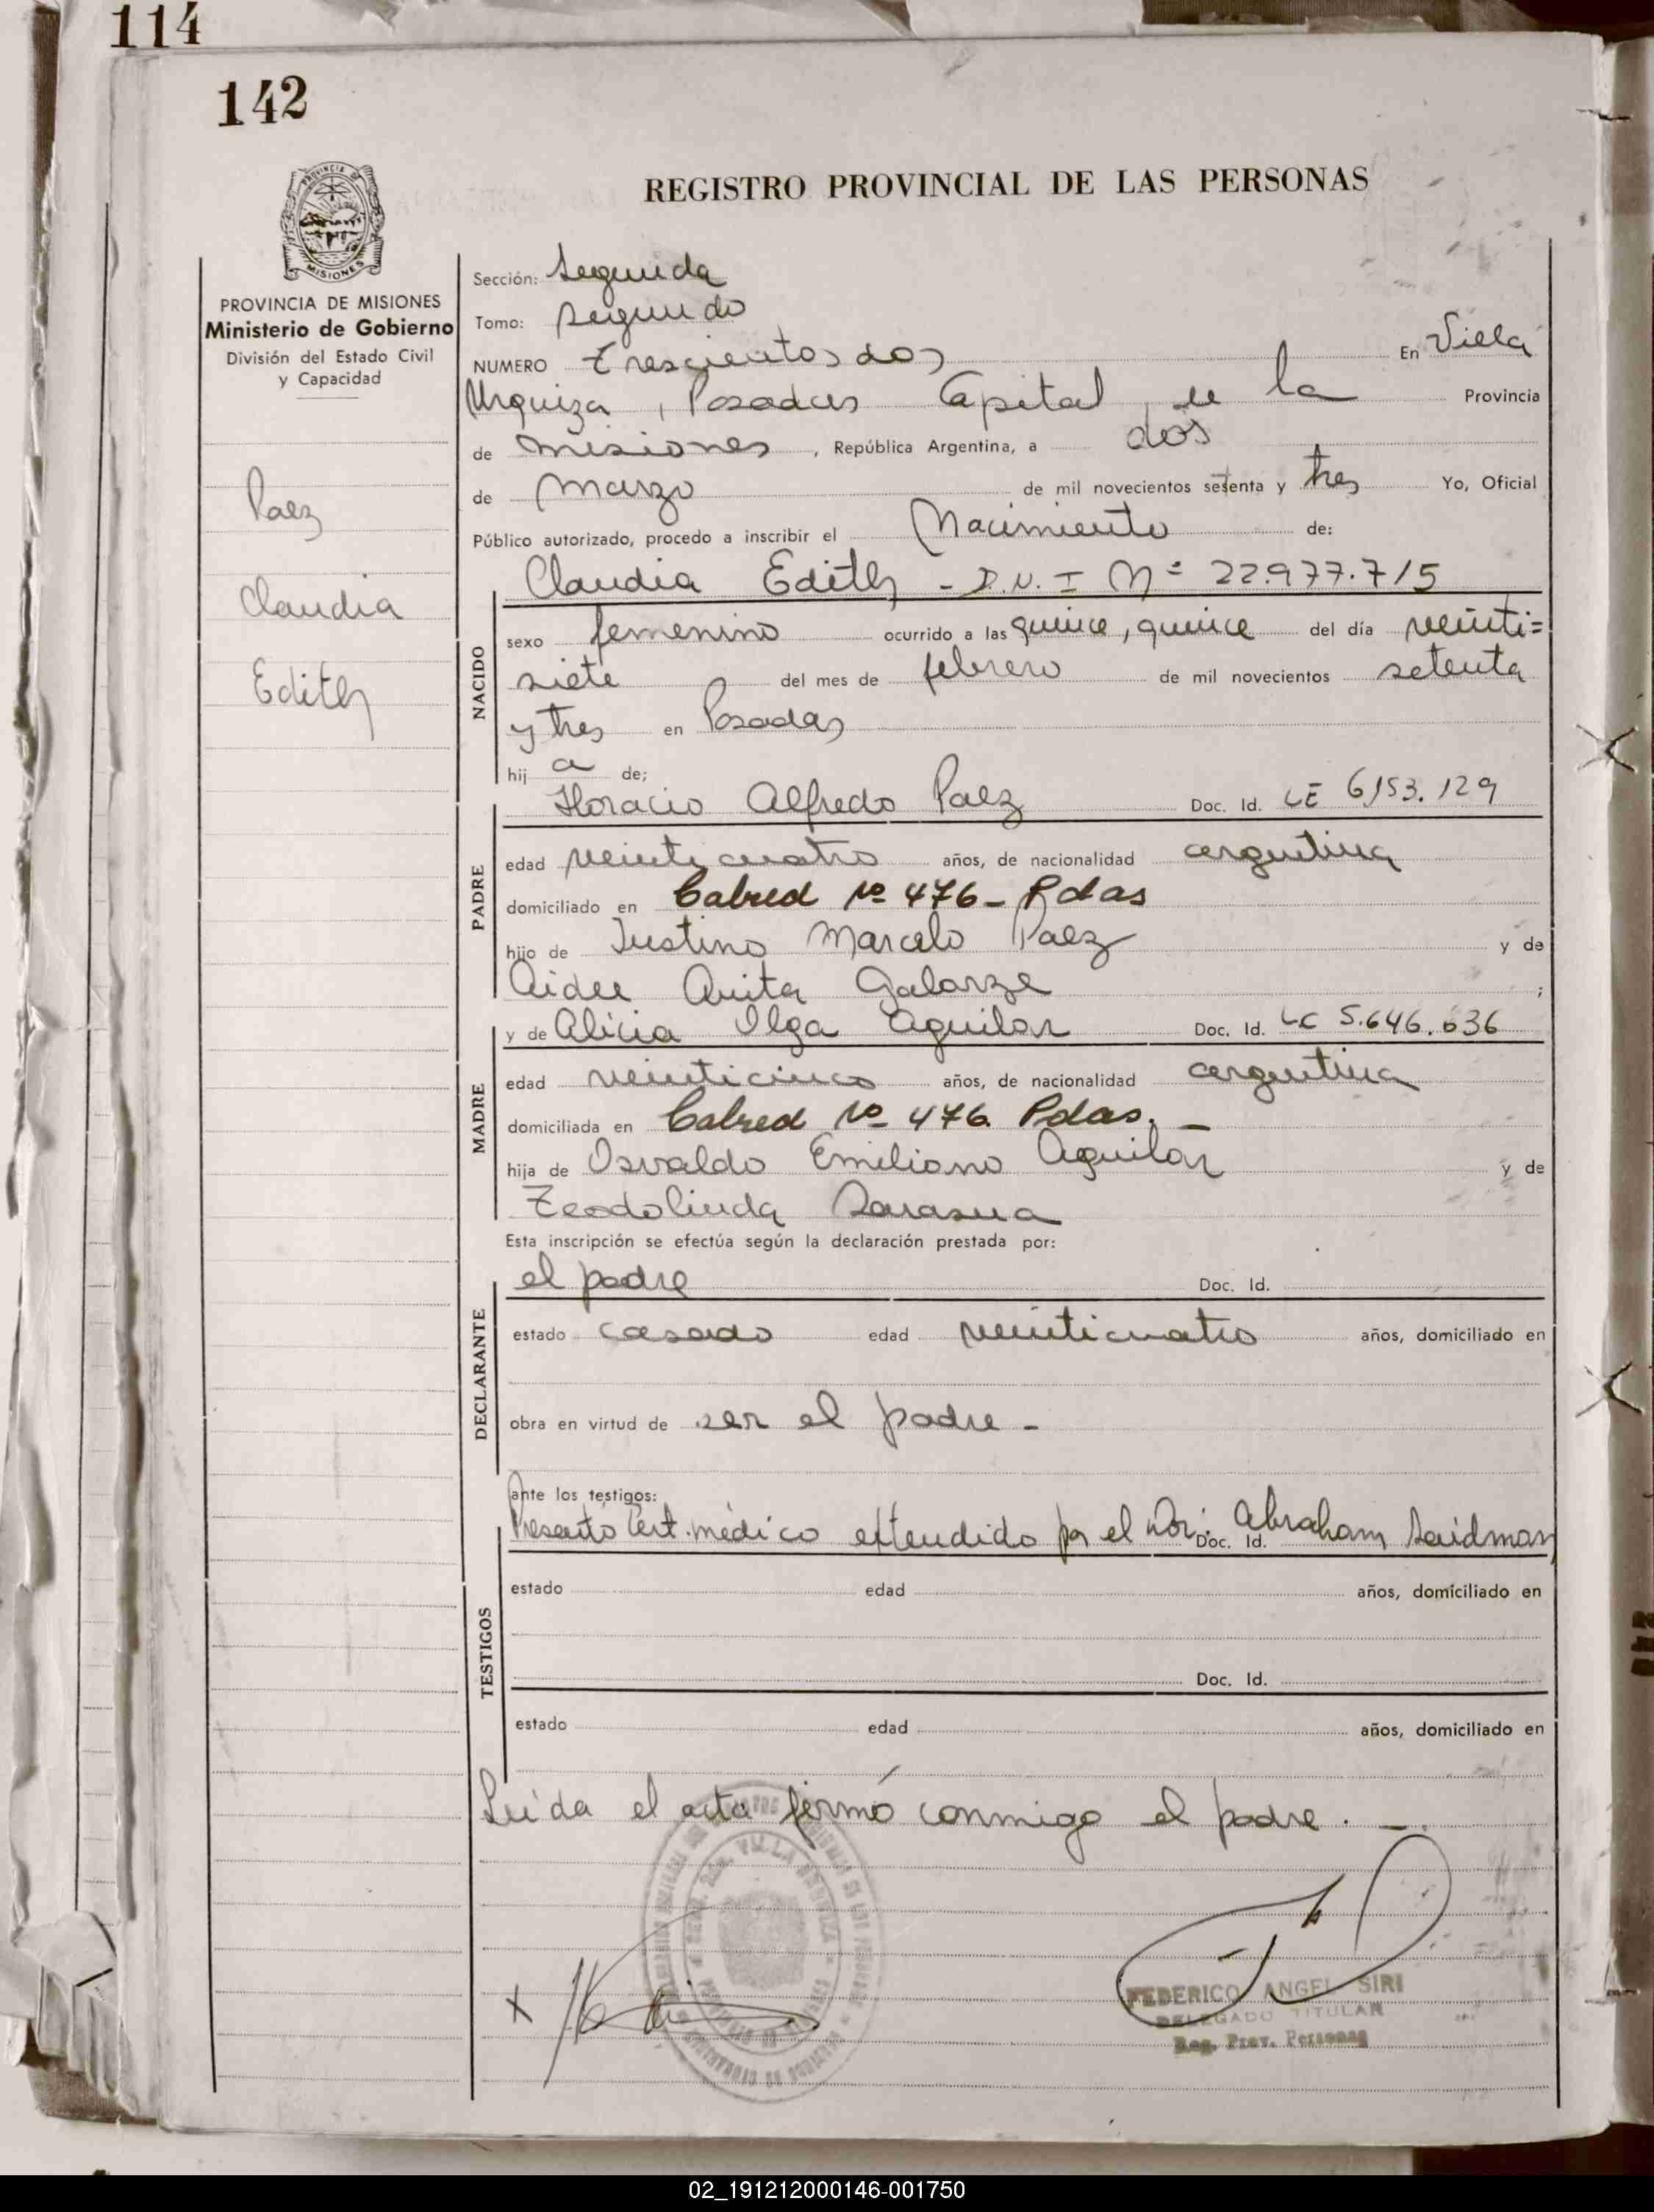 114
142
REGISTRO PROVINCIAL DE LAS PERSONAS
PROVINCIA DE MISIONES
PROVINCIA DE MISIONES
Ministerio de Gobierno
División del Estado Civil
y Capacidad
Paez
Claudia
Edith
Sección: Segunda
Tomo: Segundo
NUMERO Trescientos dos En Villa
Urquiza, Posadas Capital de la Provincia
de Misiones, República Argentina, a dos
de Marzo de mil novecientos setenta y tres Yo, Oficial
Público autorizado, procedo a inscribir el Nacimiento de:
Claudia Edith - D.N.I Nº 22.977.715
NACIDO
sexo femenino ocurrido a las quince, quince del día veinti=
siete del mes de febrero de mil novecientos setenta
y tres en Posadas
hij a de;
Horacio Alfredo Paez Doc. Id. LE 6153.129
PADRE
edad veinticuatro años, de nacionalidad argentina
domiciliado en Cabred Nº 476 - Pdas
hijo de Justino Marcelo Paez y de
Aidee Anita Galarze ;
y de Alicia Olga Aguilar Doc. Id. LC 5.646.636
MADRE
edad veinticinco años, de nacionalidad argentina
domiciliada en Cabred Nº 476. Pdas. -
hija de Osvaldo Emiliano Aguilar y de
Teodolinda Sarasua
Esta inscripción se efectúa según la declaración prestada por:
el padre Doc. Id.
DECLARANTE
estado casado edad veinticuatro años, domiciliado en
obra en virtud de ser el padre -
ante los testigos:
Presentó Cert. médico extendido por el Dor. Abraham Saidman
Doc. Id.
TESTIGOS
estado edad años, domiciliado en
Doc. Id.
estado edad años, domiciliado en
Leída el acta firmó conmigo el padre. -.
X
FEDERICO ANGEL SIRI
DELEGADO TITULAR
Reg. Prov. Personas
02_191212000146-001750